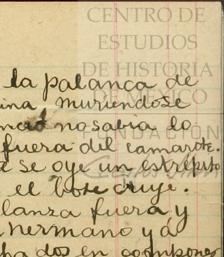 CENTRO DE
ESTUDIOS
DE HISTORIA
DE MÉXICO
la palanca de
ina muriendose
no sabia lo
fuera del camarote.
se oye un estrépito
el bote cruje.
lanza fuera y
hermano ya
dos en